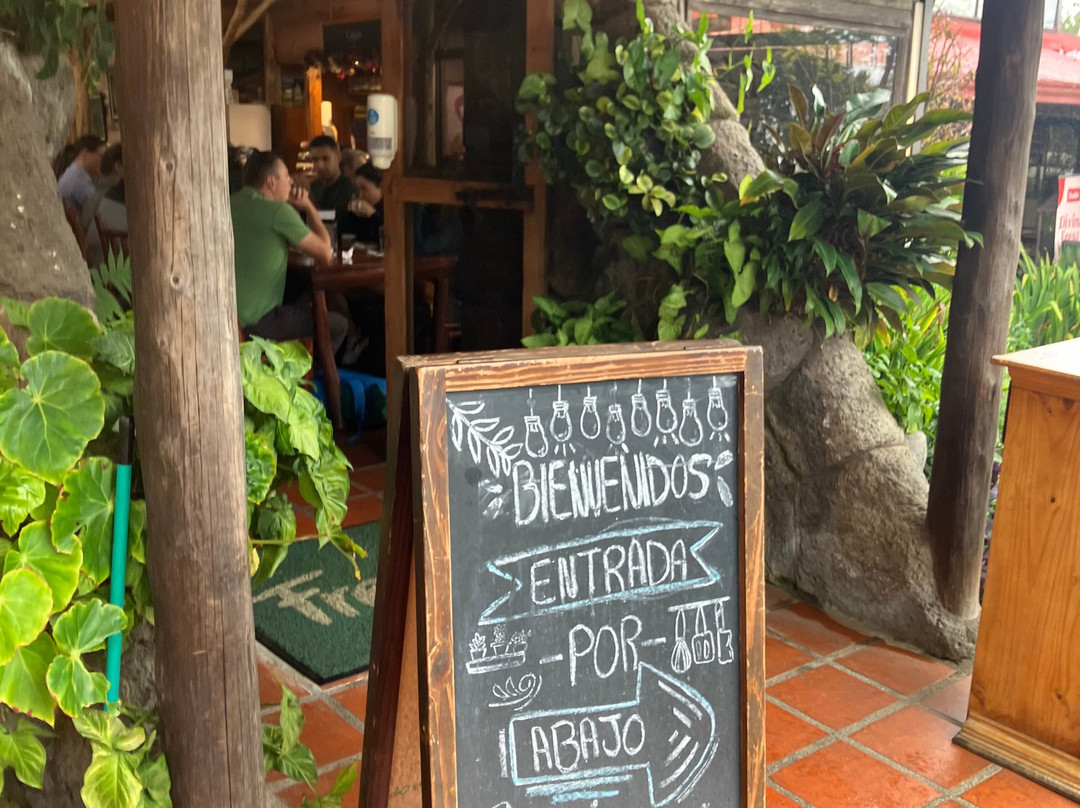 BIENVENIDOS
ENTRADA
POR
ABAJO
Fre